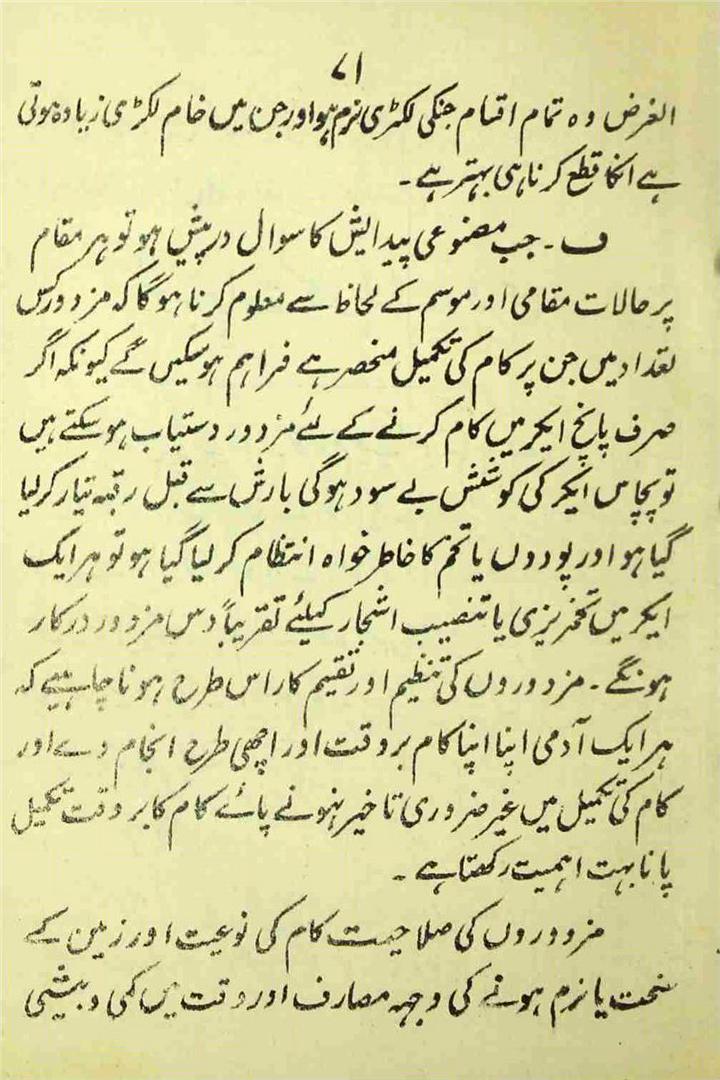 ۷۱
الغرض وہ تمام اقسام جنکی لکڑی نرم ہو اور جن میں خام لکڑی زیادہ ہوتی
ہے انکا قطع کرنا ہی بہتر ہے ۔
ف ۔ جب مصنوعی پیدایش کا سوال درپیش ہو تو ہر مقام
پر حالات مقامی اور موسم کے لحاظ سے معلوم کرنا ہوگا کہ مزدور کس
تعداد میں جن پر کام کی تکمیل منحصر ہے فراہم ہوسکیں گے کیونکہ اگر
صرف پانچ ایکر میں کام کرنے کے لئے مزدور دستیاب ہو سکتے ہیں
تو پچاس ایکر کی کوشش بے سود ہوگی بارش سے قبل رقبہ تیار کرلیا
گیا ہو اور پودوں یا تخم کا خاطر خواہ انتظام کر لیا گیا ہو تو ہر ایک
ایکر میں تخمریزی یا تنصیب اشجار کیلئے تقریباً دس مزدور درکار
ہونگے ۔ مزدوروں کی تنظیم اور تقسیم کار اس طرح ہونا چاہیے کہ
ہر ایک آدمی اپنا اپنا کام بروقت اور اچھی طرح انجام دے اور
کام کی تکمیل میں غیر ضروری تاخیر نہونے پائے کام کا بروقت تکمیل
پانا بہت اہمیت رکھتا ہے ۔
مزدوروں کی صلاحیت کام کی نوعیت اور زمین کے
سخت یا نرم ہونے کی وجہہ مصارف اور وقت میں کمی و بیشی